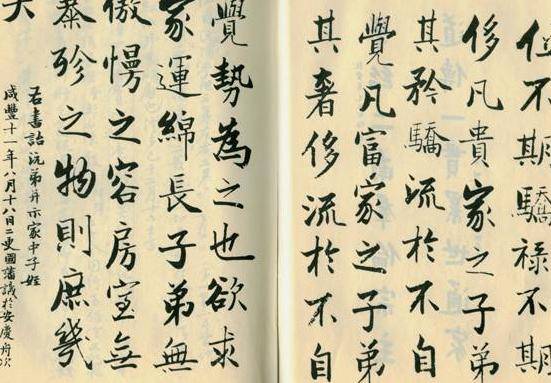 位不期驕祿不期
侈凡貴家之子弟
其矜驕流於不自
覺凡富家之子弟
其奢侈流於不自
覺勢為之也欲求
家運綿長子弟無
傲慢之容房室無
暴殄之物則庶幾
右書詒沅弟并示家中子姪
咸豐十一年八月十八日二更國藩識於安慶舟次